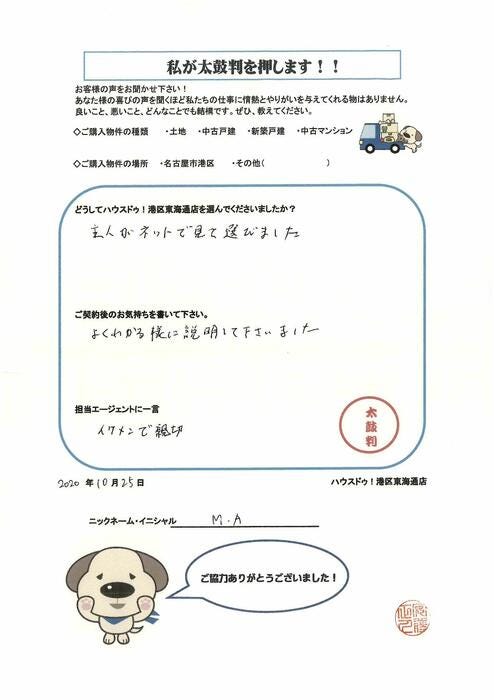 私が太鼓判を押します！！
お客様の声をお聞かせ下さい！
あなた様の喜びの声を聞くほど私たちの仕事に情熱とやりがいを与えてくれる物はありません。
良いこと、悪いこと、どんなことでも結構です。ぜひ、教えてください。
◇ご購入物件の種類　・土地　・中古戸建　・新築戸建　・中古マンション
◇ご購入物件の場所　・名古屋市港区　・その他（　　　　　　　）
どうしてハウスドゥ！港区東海通店を選んでくださいましたか？
主人がネットで見て選びました
ご契約後のお気持ちを書いて下さい。
よくわかる様に説明して下さいました
担当エージェントに一言
イケメンで親切
太鼓判
2020 年 10 月 25 日　ハウスドゥ！港区東海通店
ニックネーム・イニシャル　M.A
ご協力ありがとうございました！